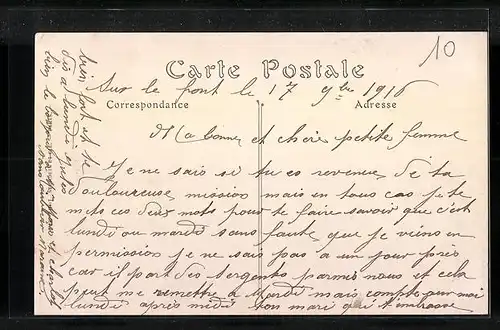 10
Carte Postale
Sur le front le 17 9bre 1916
Correspondance Adresse
Ma bonne et chère petite femme
Je ne sais si tu es revenue de ta
douloureuse mission mais en tous cas je te
mets ces deux mots pour te faire savoir que c'est
lundi ou mardi sans faute que je viens en
permission je ne sais pas a un jour près
car il part des sergents parmi nous et cela
peut me remettre a Mardi mais compte sur moi
lundi après midi ton mari qui t'embrasse
bien fort et a